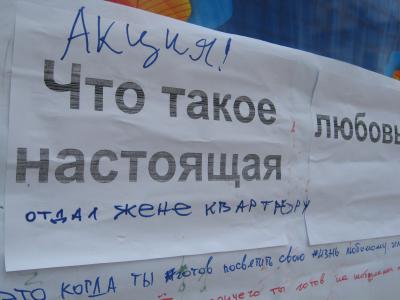 Акция!
Что такое любовь
настоящая
отдал жене квартиру
это когда ты готов посвятить свою жизнь любимому
ты готов на